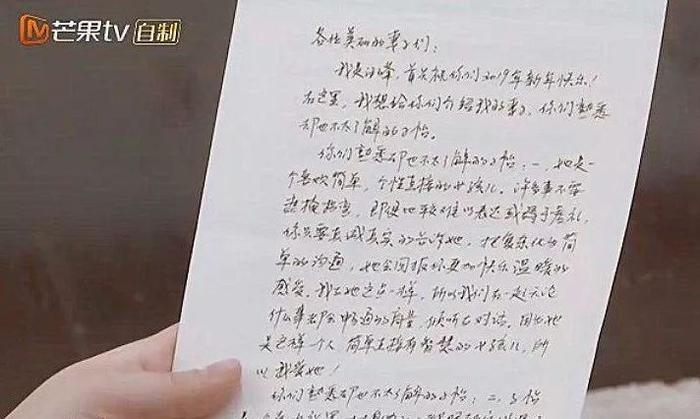 芒果tv 自制
各位美丽的妻子们：
我是汪峰，首先祝你们2019年新年快乐！
在这里，我想给你们介绍我的妻子，你们熟悉
却也不太了解的子怡。
你们熟悉却也不太了解的子怡：一、她是一
个喜欢简单，个性直接的女孩儿。许多事不需
遮掩，即便比较难以表达或碍于
你只要真诚真实的告诉她，把复杂化为简
单的沟通，她会回报你更加快乐温暖的
感受。我和她这点一样，所以我们在一起无论
什么事都会畅通的商量，倾听与对话。因为她
是这样一个人 简单直接有智慧的女孩儿，所
以我爱她！
你们熟悉却也不太了解的子怡：二、子怡